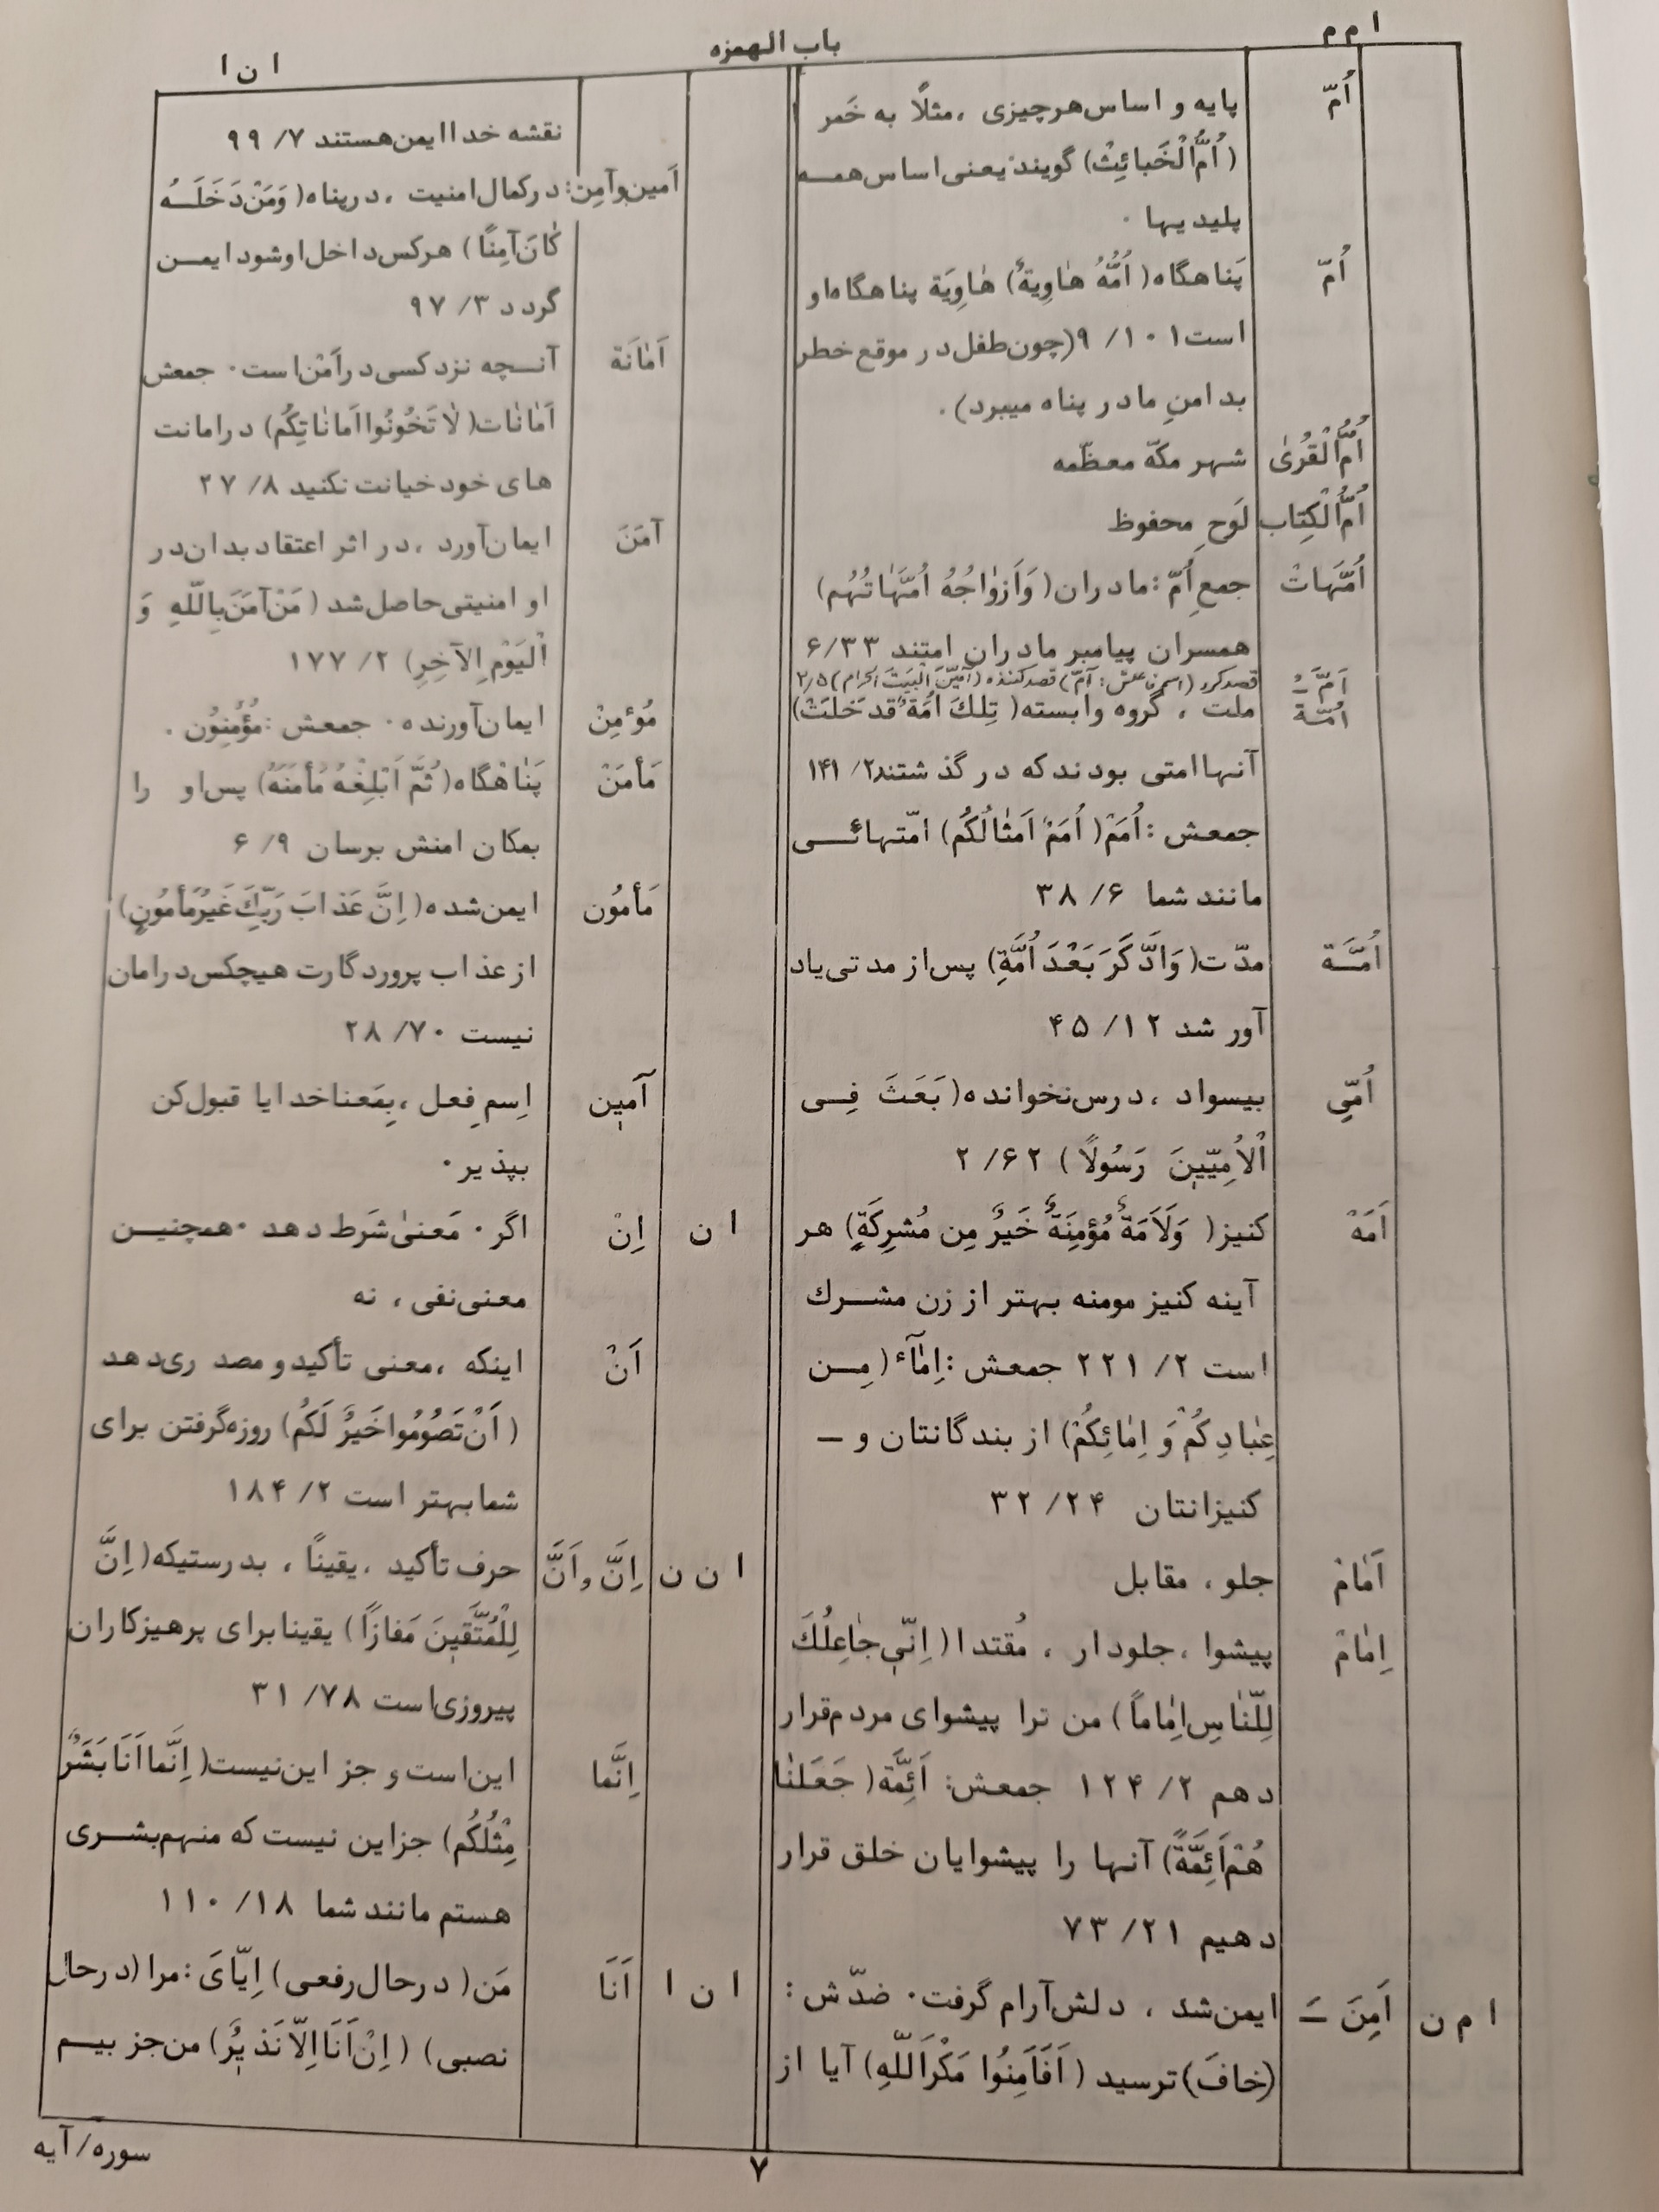 ا م م
باب الهمزه
ا ن ا
اُمّ پایه و اساس هرچیزی ، مثلاً به خَمر
(اُمُّ الْخَبائِثْ) گویند یعنی اساس همـه
پلیدیها ۰
اُمّ پَناهگاه ( اُمُّهُ هٰاوِیةٌ) هٰاوِیَة پناهگاه او
است ۱۰۱ /۹ (چون طفل در موقع خطر
بدامنِ مادر پناه میبرد) .
اُمُّ الْقُریٰ شهر مکّه معظّمه
اُمُّ الْکِتٰاب لَوح محفوظ
اُمَّهاتْ جمعِ اُمّ : مادران ( وَ اَزوٰاجُهُ اُمَّهٰاتُهُم)
همسران پیامبر مادران امتند ۳۳ /۶
اَمَّ ـُ قصد کرد (اسم فاعلش : آمّ) قصد کننده (آمّینَ البَیتَ الحَرام) ۲/۵
اُمَّـة ملت ، گروه وابسته ( تِلكَ اُمَّةٌ قَد خَلَتْ)
آنها امتی بودند که در گذشتند ۲/ ۱۴۱
جمعش : اُمَمْ ( اُمَمٌ اَمثٰالُکُم) امّتهائـی
مانند شما ۶/ ۳۸
اُمَّـة مدّت ( وَادَّکَرَ بَعْدَ اُمَّةٍ) پس از مدتی یاد
آور شد ۱۲/ ۴۵
اُمّی بیسواد ، درس نخوانده ( بَعَثَ فِـی
الْاُمِیّینَ رَسُولاً ) ۶۲/ ۲
اَمَة کنیز ( وَلَاَمَةٌ مُؤمِنَةٌ خَیرٌ مِن مُشرِکَةٍ) هر
آینه کنیز مومنه بهتر از زن مشـرك
است ۲/ ۲۲۱ جمعش : اِمٰآء ( مِـن
عِبٰادِکُمْ وَ اِمٰائِکُمْ) از بندگانتان و ـ
کنیزانتان ۲۴/ ۳۲
اَمٰامْ جلو ، مقابل
اِمٰامْ پیشوا ، جلودار ، مُقتدا ( اِنّی جٰاعِلُكَ
لِلنّٰاسِ اِمٰاماً ) من ترا پیشوای مردم قرار
دهم ۲/ ۱۲۴ جمعش : اَئِمَّة ( جَعَلنٰا
هُمْ اَئِمَّةً) آنها را پیشوایان خلق قرار
دهیم ۲۱/ ۷۳
ا م ن اَمِنَ ـَ ایمن شد ، دلش آرام گرفت ۰ ضدّش :
(خافَ) ترسید ( اَفَاَمِنُوا مَکْرَ اللّهِ) آیا از
نقشه خدا ایمن هستند ۷/ ۹۹
اَمین وآمِن : در کمال امنیت ، در پناه ( وَمَنْ دَخَلَـهُ
کٰانَ آمِنًا ) هرکس داخل او شود ایمـن
گردد ۳/ ۹۷
اَمٰانَة آنـچه نزد کسی در اَمْن است ۰ جمعش
اَمٰانٰات ( لٰا تَخُونُوا اَمٰانٰاتِکُم) در امانت
های خود خیانت نکنید ۸/ ۲۷
آمَنَ ایمان آورد ، در اثر اعتقاد بدان در
او امنیتی حاصل شد ( مَنْ آمَنَ بِاللّهِ وَ
الْیَوْمِ الآخِرِ) ۲/ ۱۷۷
مُوٴمِنْ ایمان آورنده ۰ جمعش : مُوٴمِنُون .
مَأمَنْ پَناهْگاه ( ثُمَّ اَبْلِغْهُ مَأمَنَهُ) پس او را
بمکان امنش برسان ۹/ ۶
مَأمُون ایمن شده ( اِنَّ عَذابَ رَبِّكَ غَیرُ مَأمُونٍ)
از عذاب پروردگارت هیچکس در امان
نیست ۷۰/ ۲۸
آمین اِسمِ فِعل ، بِمَعنا خدایا قبول کن
بپذیر ۰
ا ن اِنْ اگر ۰ مَعنیٰ شَرط دهد ۰ همچنیـن
معنی نفی ، نه
اَنْ اینکه ، معنی تأکید و مصدری دهد
( اَنْ تَصُومُوا خَیرٌ لَکُم) روزه گرفتن برای
شما بهتر است ۲/ ۱۸۴
ا ن ن اِنَّ و اَنَّ حرف تأکید ، یقینًا ، بدرستیکه ( اِنَّ
لِلْمُتَّقینَ مَفازًا ) یقینا برای پرهیزکاران
پیروزی است ۷۸/ ۳۱
اِنَّما این است و جز این نیست ( اِنَّما اَنَا بَشَرٌ
مِثْلُکُم) جز این نیست که منهم بشـری
هستم مانند شما ۱۸/ ۱۱۰
ا ن ا اَنَا مَن ( در حال رفعی) اِیّایَ : مرا ( در حال
نصبی) ( اِنْ اَنَا اِلاّ نَذیرٌ) من جز بیـم
سوره/آیه
۷